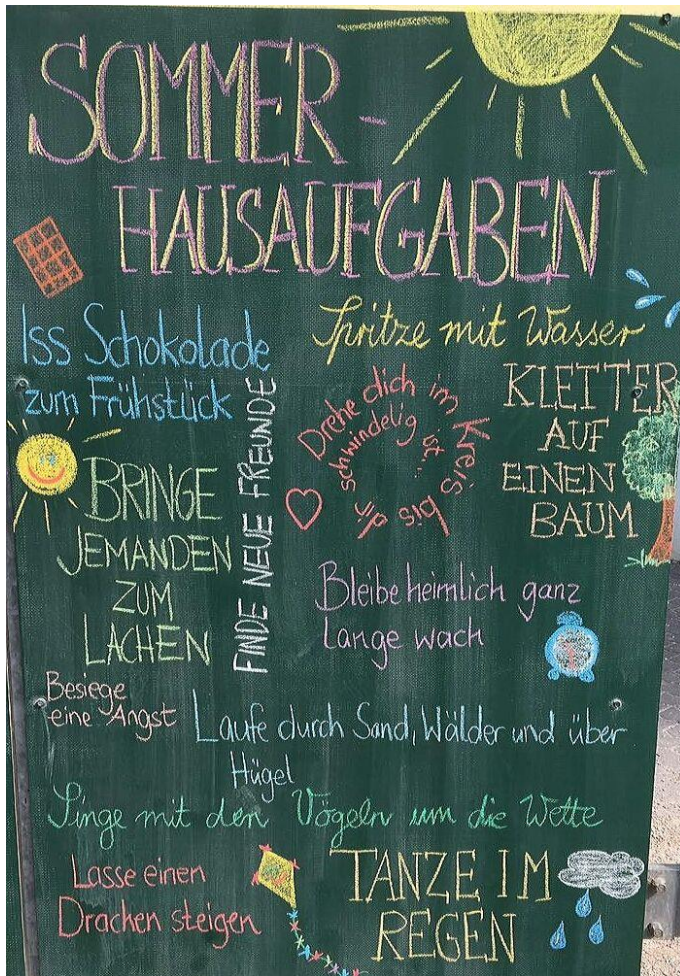 SOMMER-
HAUSAUFGABEN
Iss Schokolade
zum Frühstück
Spritze mit Wasser
FINDE NEUE FREUNDE
Drehe dich im Kreis bis dir
schwindelig ist...
KLETTER
AUF
EINEN
BAUM
BRINGE
JEMANDEN
ZUM
LACHEN
Bleibe heimlich ganz
lange wach
Besiege
eine Angst
Laufe durch Sand, Wälder und über
Hügel
Singe mit den Vögeln um die Wette
Lasse einen
Drachen steigen
TANZE IM
REGEN